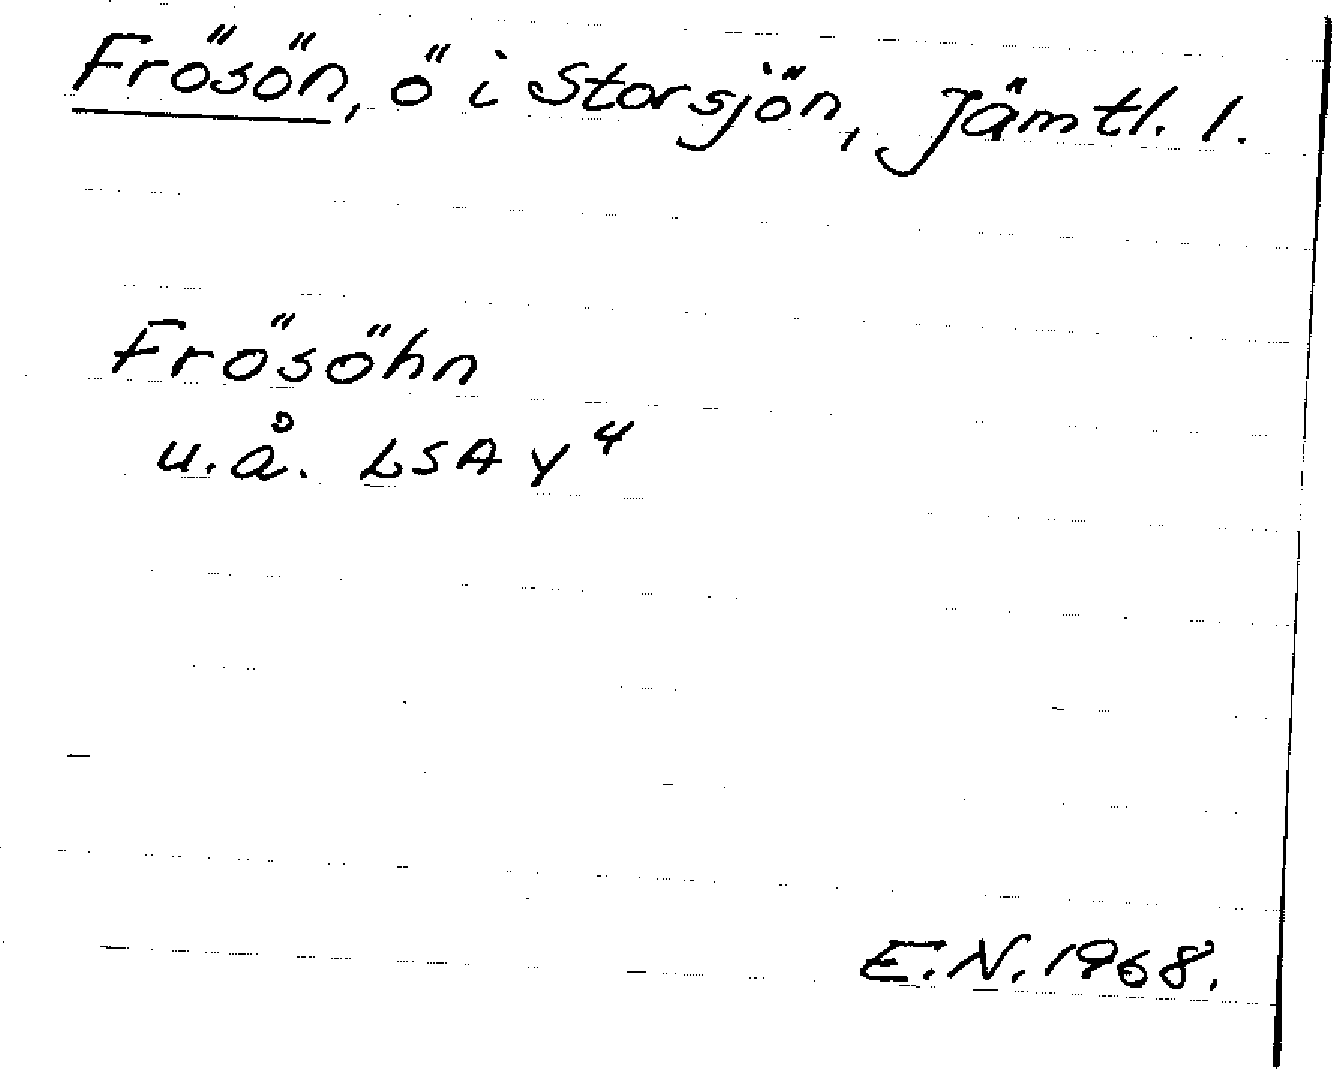 Frösön, ö i Storsjön, Jämtl. l.
Frösöhn
u.å. LSA Y⁴
E.N. 1968.